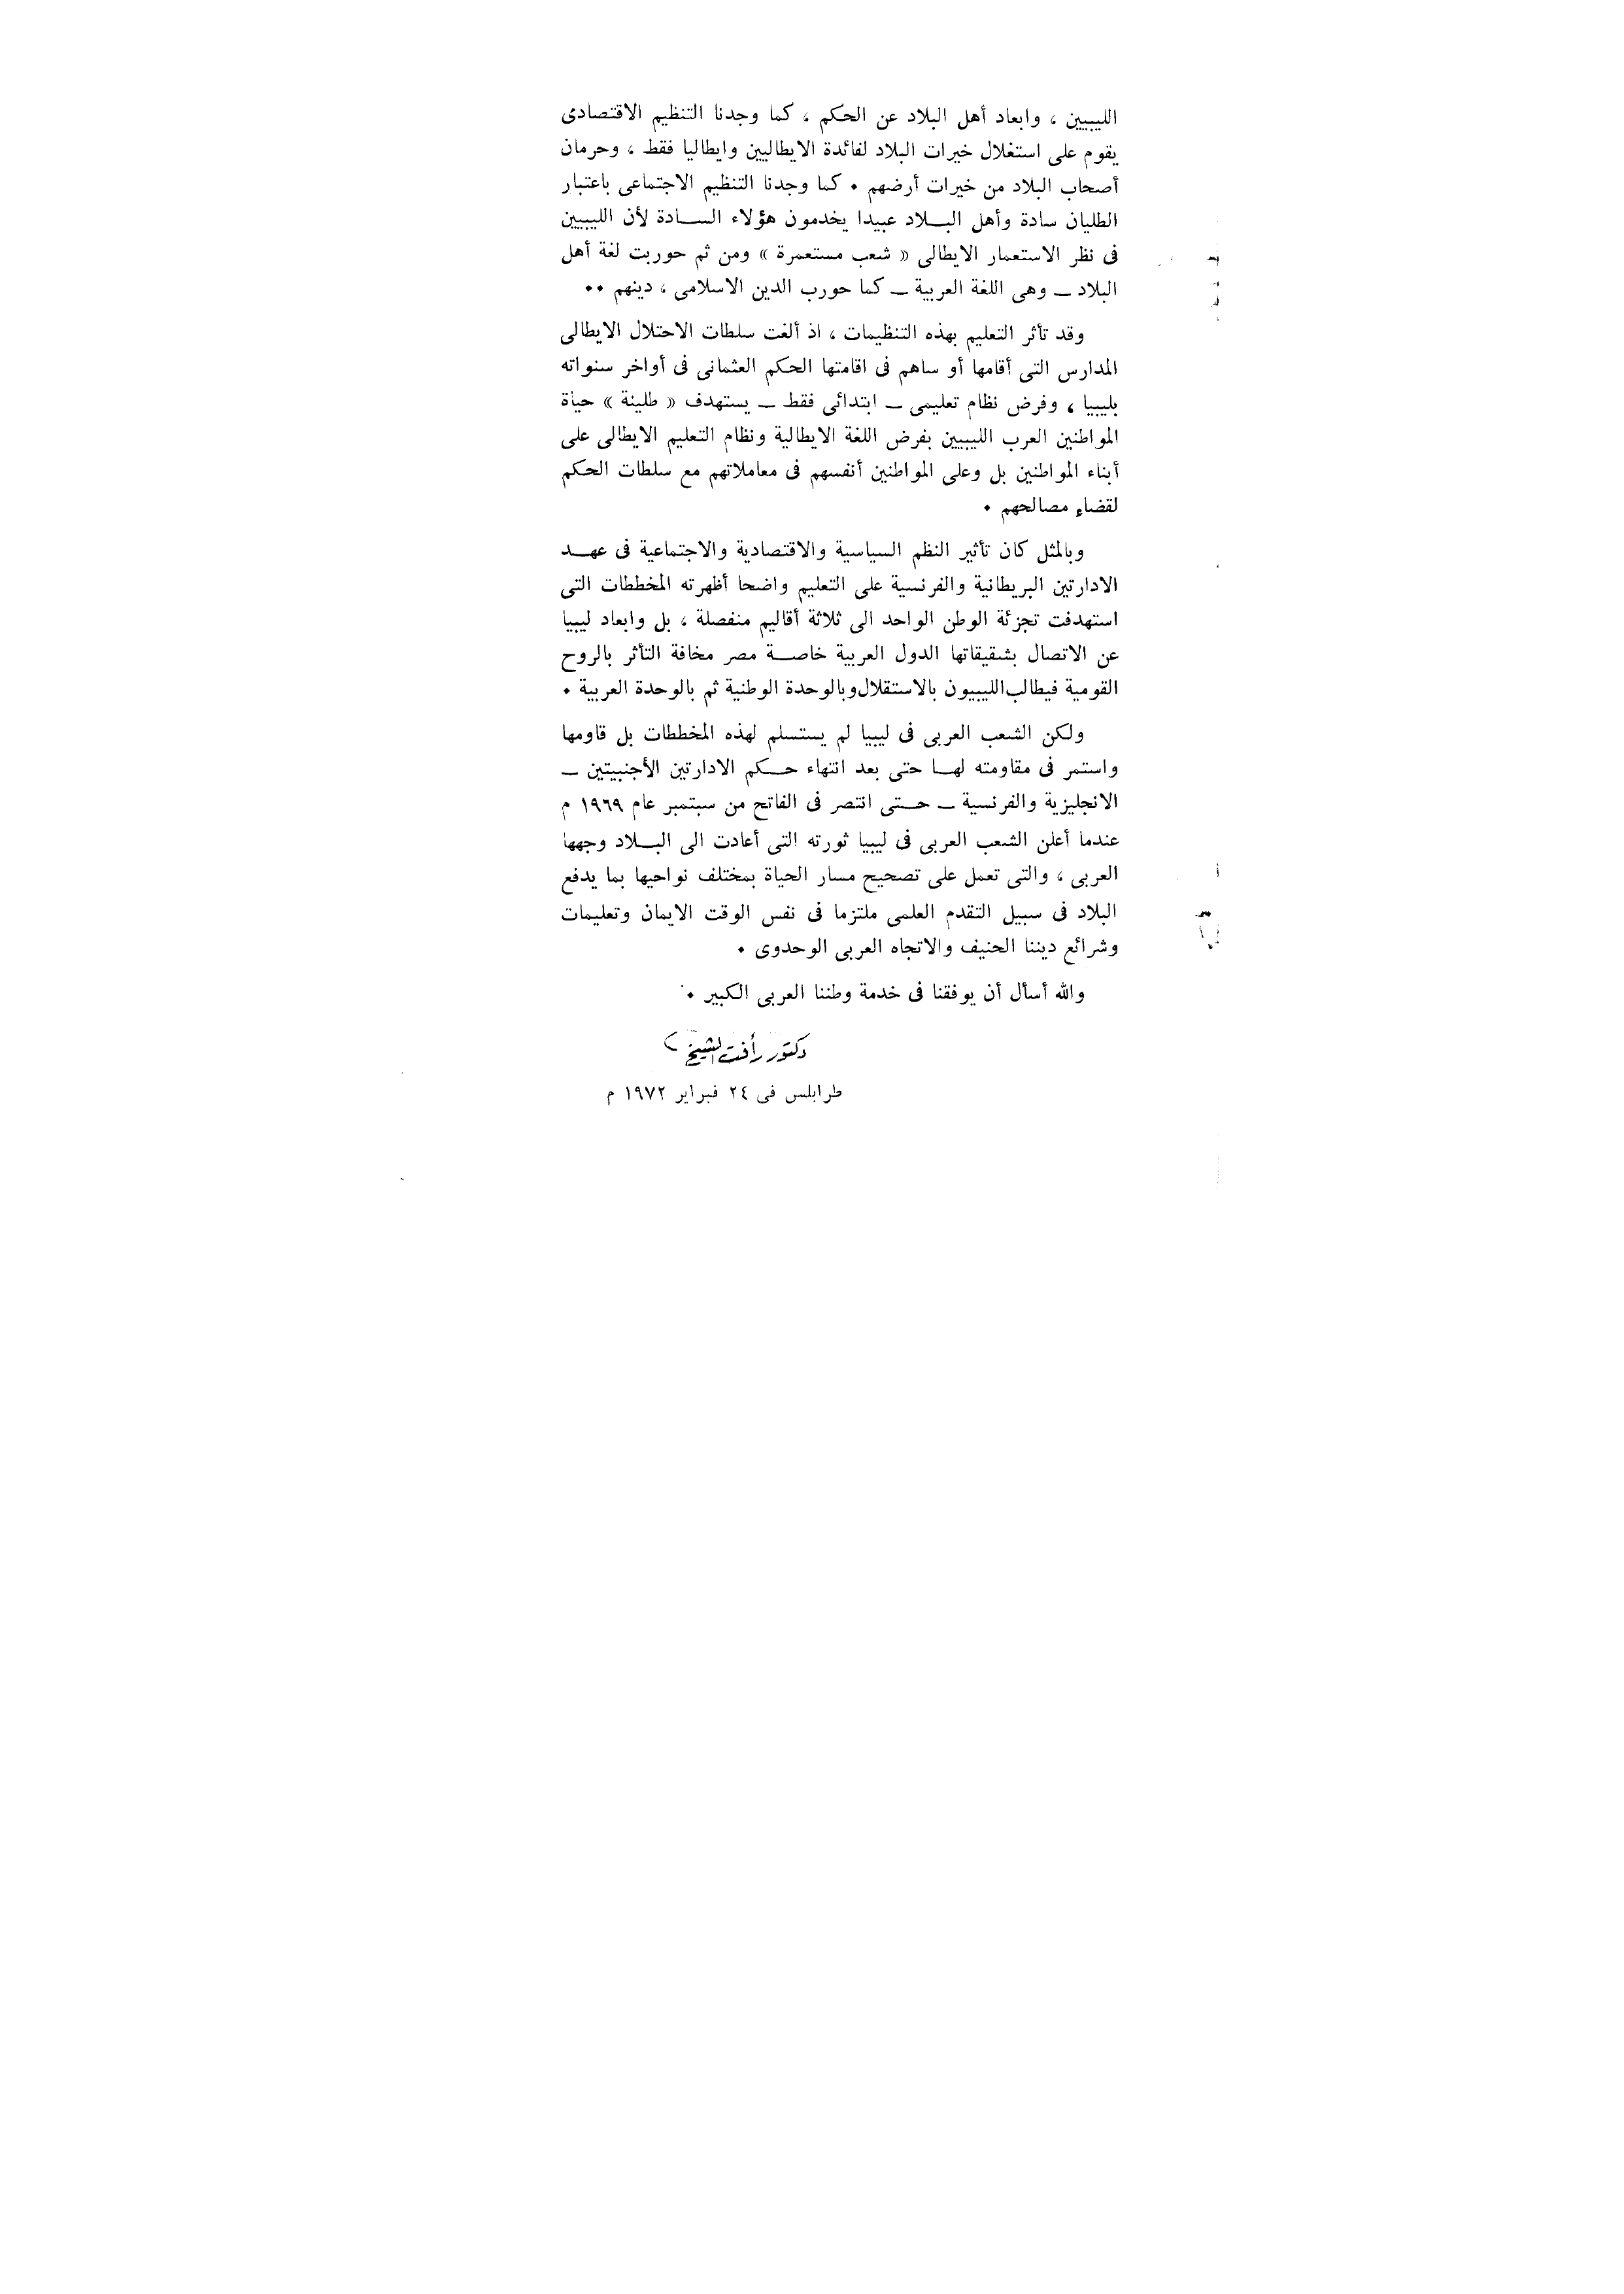 الليبيين ، وابعاد أهل البلاد عن الحكم ، كما وجدنا التنظيم الاقتصادى
يقوم على استغلال خيرات البلاد لفائدة الايطاليين وايطاليا فقط ، وحرمان
أصحاب البلاد من خيرات أرضهم • كما وجدنا التنظيم الاجتماعى باعتبار
الطليان سادة وأهل البـــلاد عبيدا يخدمون هؤلاء الســـادة لأن الليبيين
فى نظر الاستعمار الايطالى « شعب مستعمرة » ومن ثم حوربت لغة أهل
البلاد ــ وهى اللغة العربية ــ كما حورب الدين الاسلامى ، دينهم ••
وقد تأثر التعليم بهذه التنظيمات ، اذ ألغت سلطات الاحتلال الايطالى
المدارس التى أقامها أو ساهم فى اقامتها الحكم العثمانى فى أواخر سنواته
بليبيا ، وفرض نظام تعليمى ــ ابتدائى فقط ــ يستهدف « طلينة » حياة
المواطنين العرب الليبيين بفرض اللغة الايطالية ونظام التعليم الايطالى على
أبناء المواطنين بل وعلى المواطنين أنفسهم فى معاملاتهم مع سلطات الحكم
لقضاء مصالحهم •
وبالمثل كان تأثير النظم السياسية والاقتصادية والاجتماعية فى عهـــد
الادارتين البريطانية والفرنسية على التعليم واضحا أظهرته المخططات التى
استهدفت تجزئة الوطن الواحد الى ثلاثة أقاليم منفصلة ، بل وابعاد ليبيا
عن الاتصال بشقيقاتها الدول العربية خاصـــة مصر مخافة التأثر بالروح
القومية فيطالب الليبيون بالاستقلال وبالوحدة الوطنية ثم بالوحدة العربية •
ولكن الشعب العربى فى ليبيا لم يستسلم لهذه المخططات بل قاومها
واستمر فى مقاومته لهـــا حتى بعد انتهاء حـــكم الادارتين الأجنبيتين ــ
الانجليزية والفرنسية ــ حـــتى انتصر فى الفاتح من سبتمبر عام ١٩٦٩ م
عندما أعلن الشعب العربى فى ليبيا ثورته التى أعادت الى البـــلاد وجهها
العربى ، والتى تعمل على تصحيح مسار الحياة بمختلف نواحيها بما يدفع
البلاد فى سبيل التقدم العلمى ملتزما فى نفس الوقت الايمان وتعليمات
وشرائع ديننا الحنيف والاتجاه العربى الوحدوى •
والله أسأل أن يوفقنا فى خدمة وطننا العربى الكبير •
دكتور رأفت الشيخ
طرابلس فى ٢٤ فبراير ١٩٧٢ م